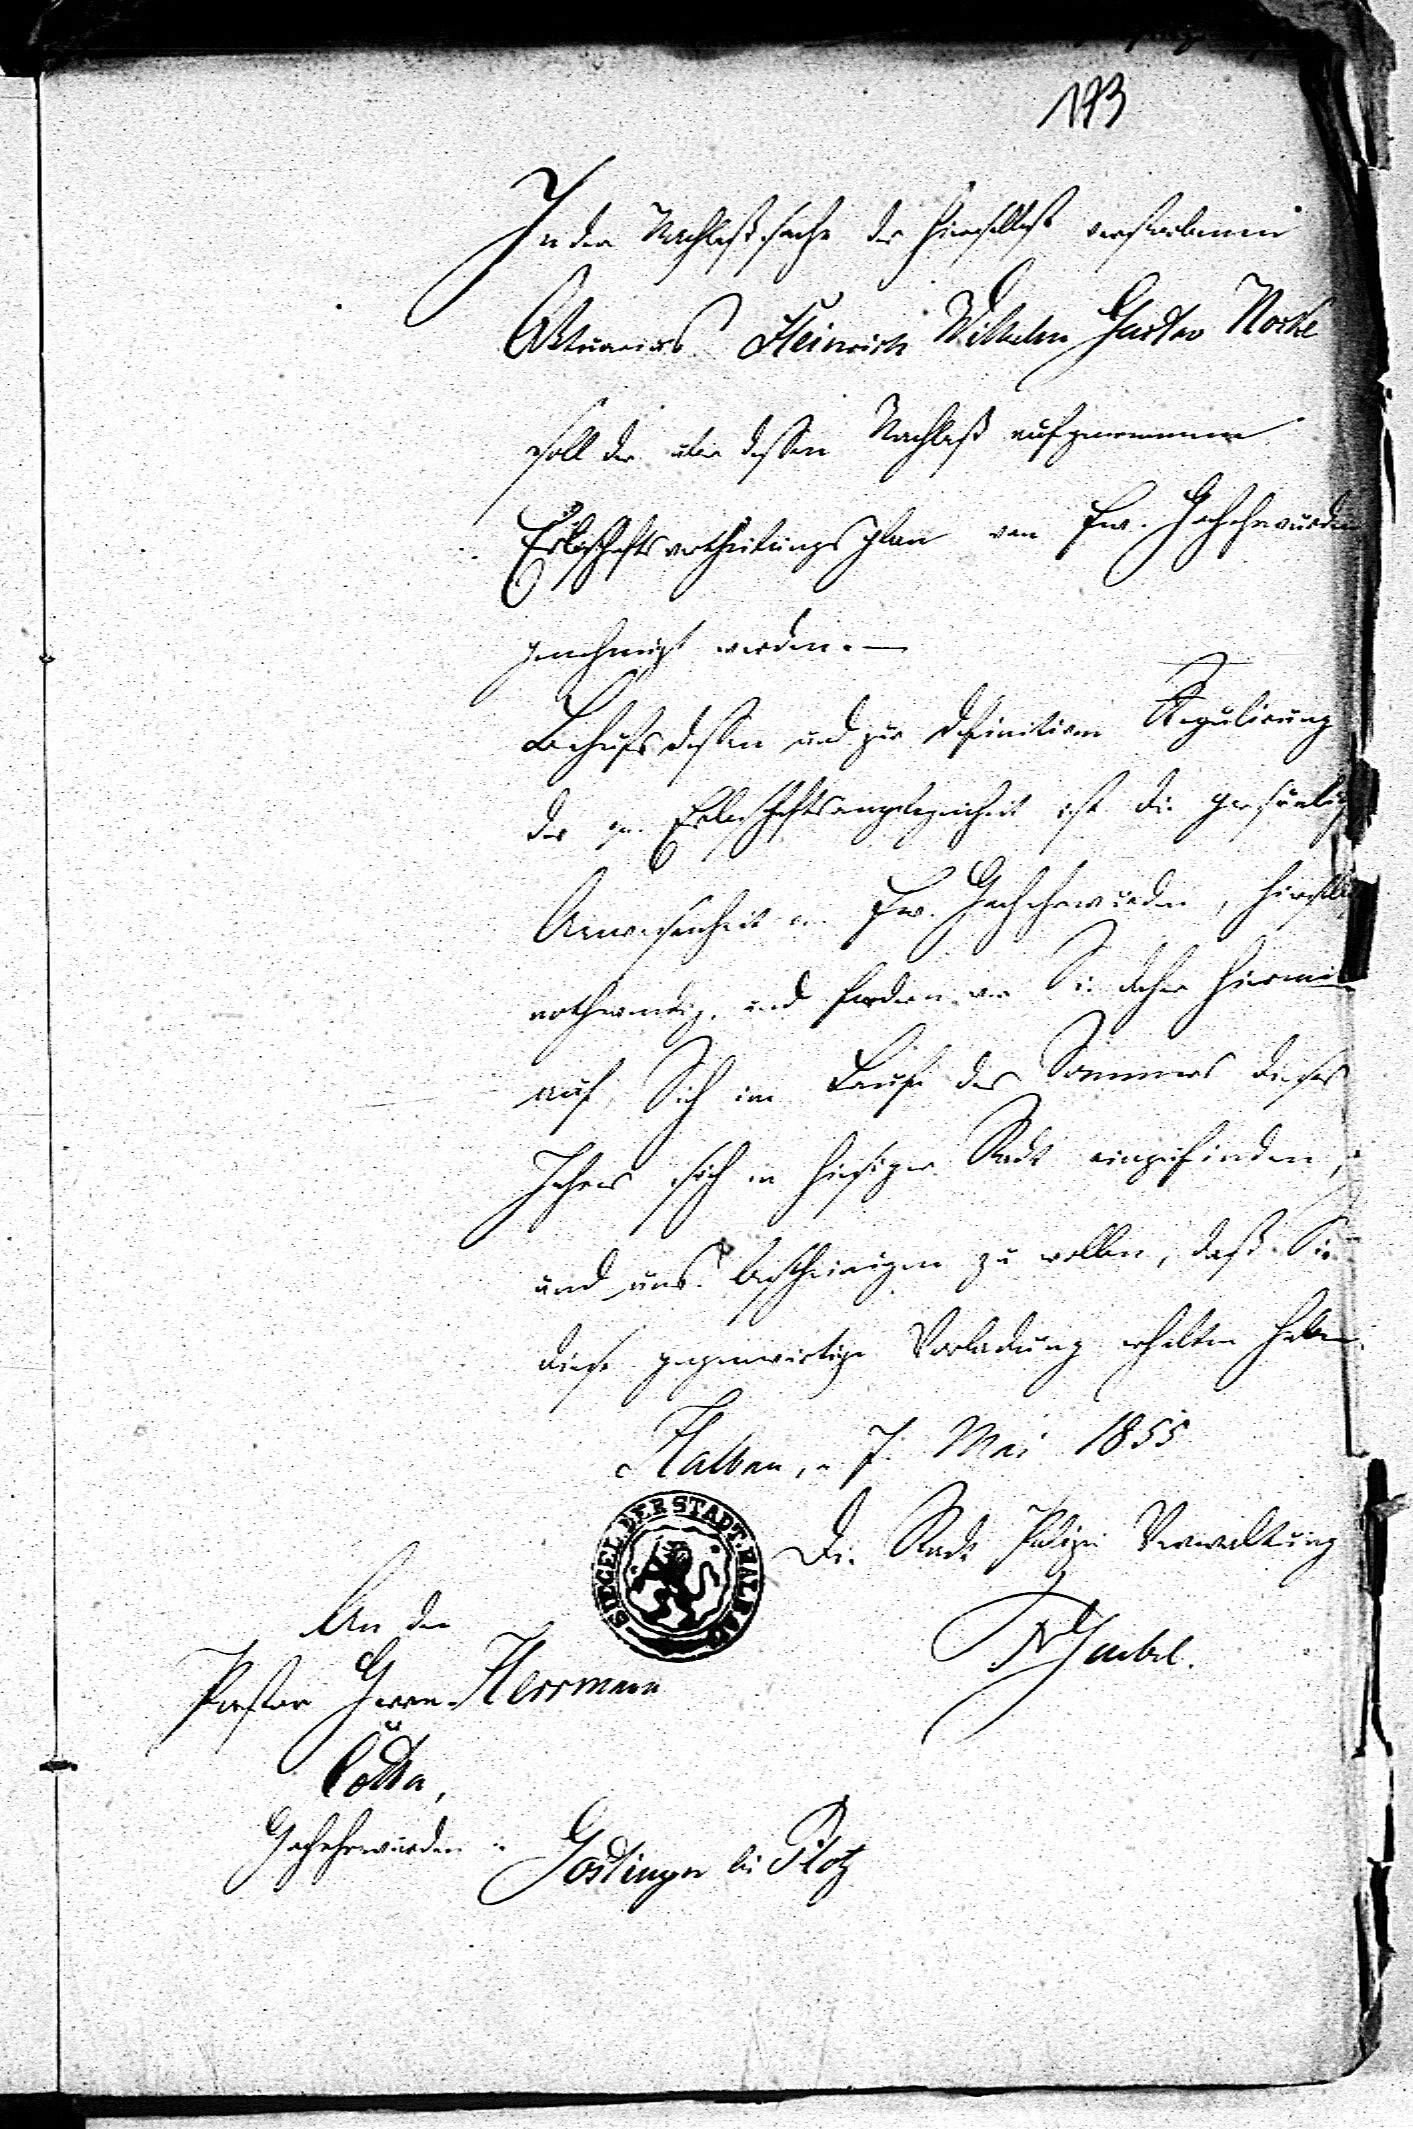 193
In der Nachlaßsache des hierselbst verstorbenen
Aktuarius Heinrich Wilhelm Gustav Noske
soll der über dessen Nachlaß aufgenommene
Erbschaftsvertheilungsplan von Ew. Hochehrwürden
genehmigt werden. —
Behufs dessen und zur definitiven Regulirung
der qu. Erbschaftsangelegenheit ist die persönliche
Anwesenheit Ew. Hochehrwürden, hierselbst
nothwendig, und fordern wir Sie daher hiermit
auf, Sich im Laufe des Sommers dieses
Jahres sich in hiesiger Stadt einzufinden,
und uns bescheinigen zu wollen, daß Sie
diese gegenwärtige Vorladung erhalten haben.
Halbau, d. 7. Mai 1855
SIEGEL DER STADT HALBAU
Die Stadt Polizei Verwaltung
An den
Pastor Herrn Herrmann
Hochehrwürden
bei